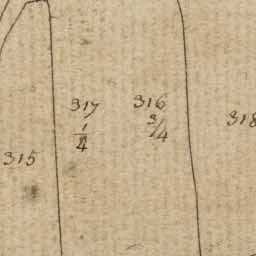 317
1/4
316
3/4
318
315